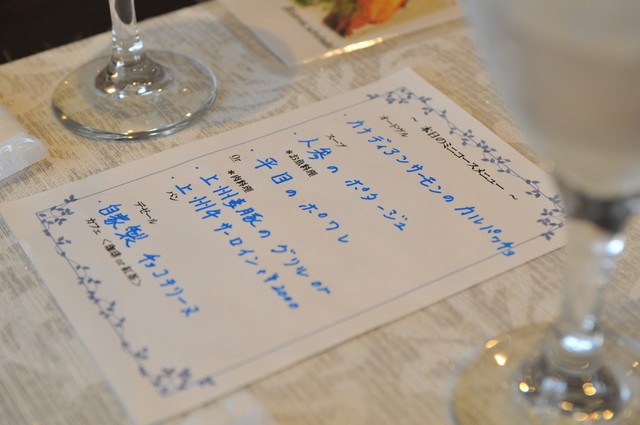 ～ 本日のミニコースメニュー ～
オードヴル
・カナディアンサーモンの カルパッチョ
スープ
・人参の ポタージュ
*お魚料理
・平目の ポワレ
Or
*肉料理
・上州麦豚の グリル or
・上州牛 サーロイン+¥2000
パン
デセール
・自家製 チョコテリーヌ
カフェ <珈琲 or 紅茶>